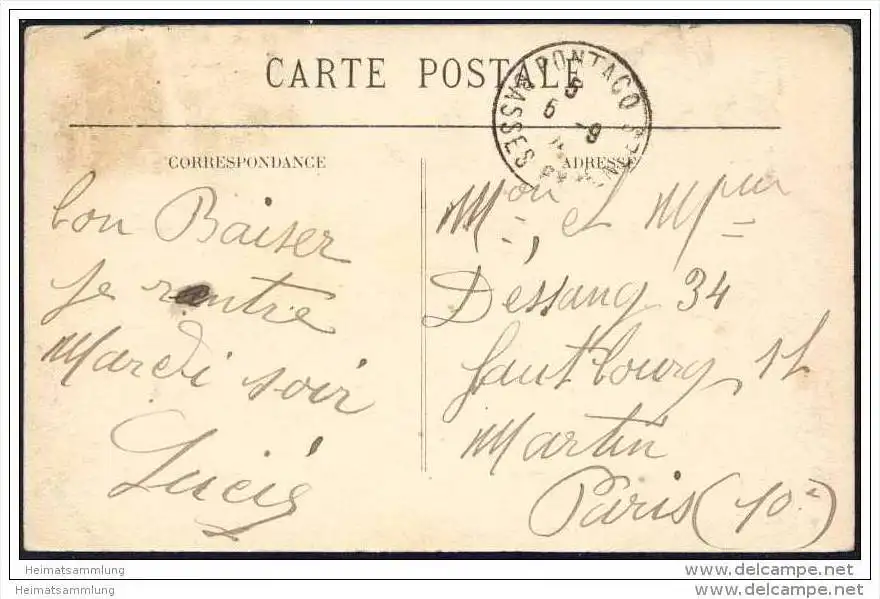 CARTE POSTALE
PONTACQ
BASSES PYRENEES
5
6 -9
CORRESPONDANCE
ADRESSE
bon Baiser
Je rentre
Mardi soir
Lucie
Mon et M
Dessang 34
faut bourg st
Martin
Paris (10e
Heimatsammlung
Heimatsammlung
www.delcampe.net
www.delcampe.net